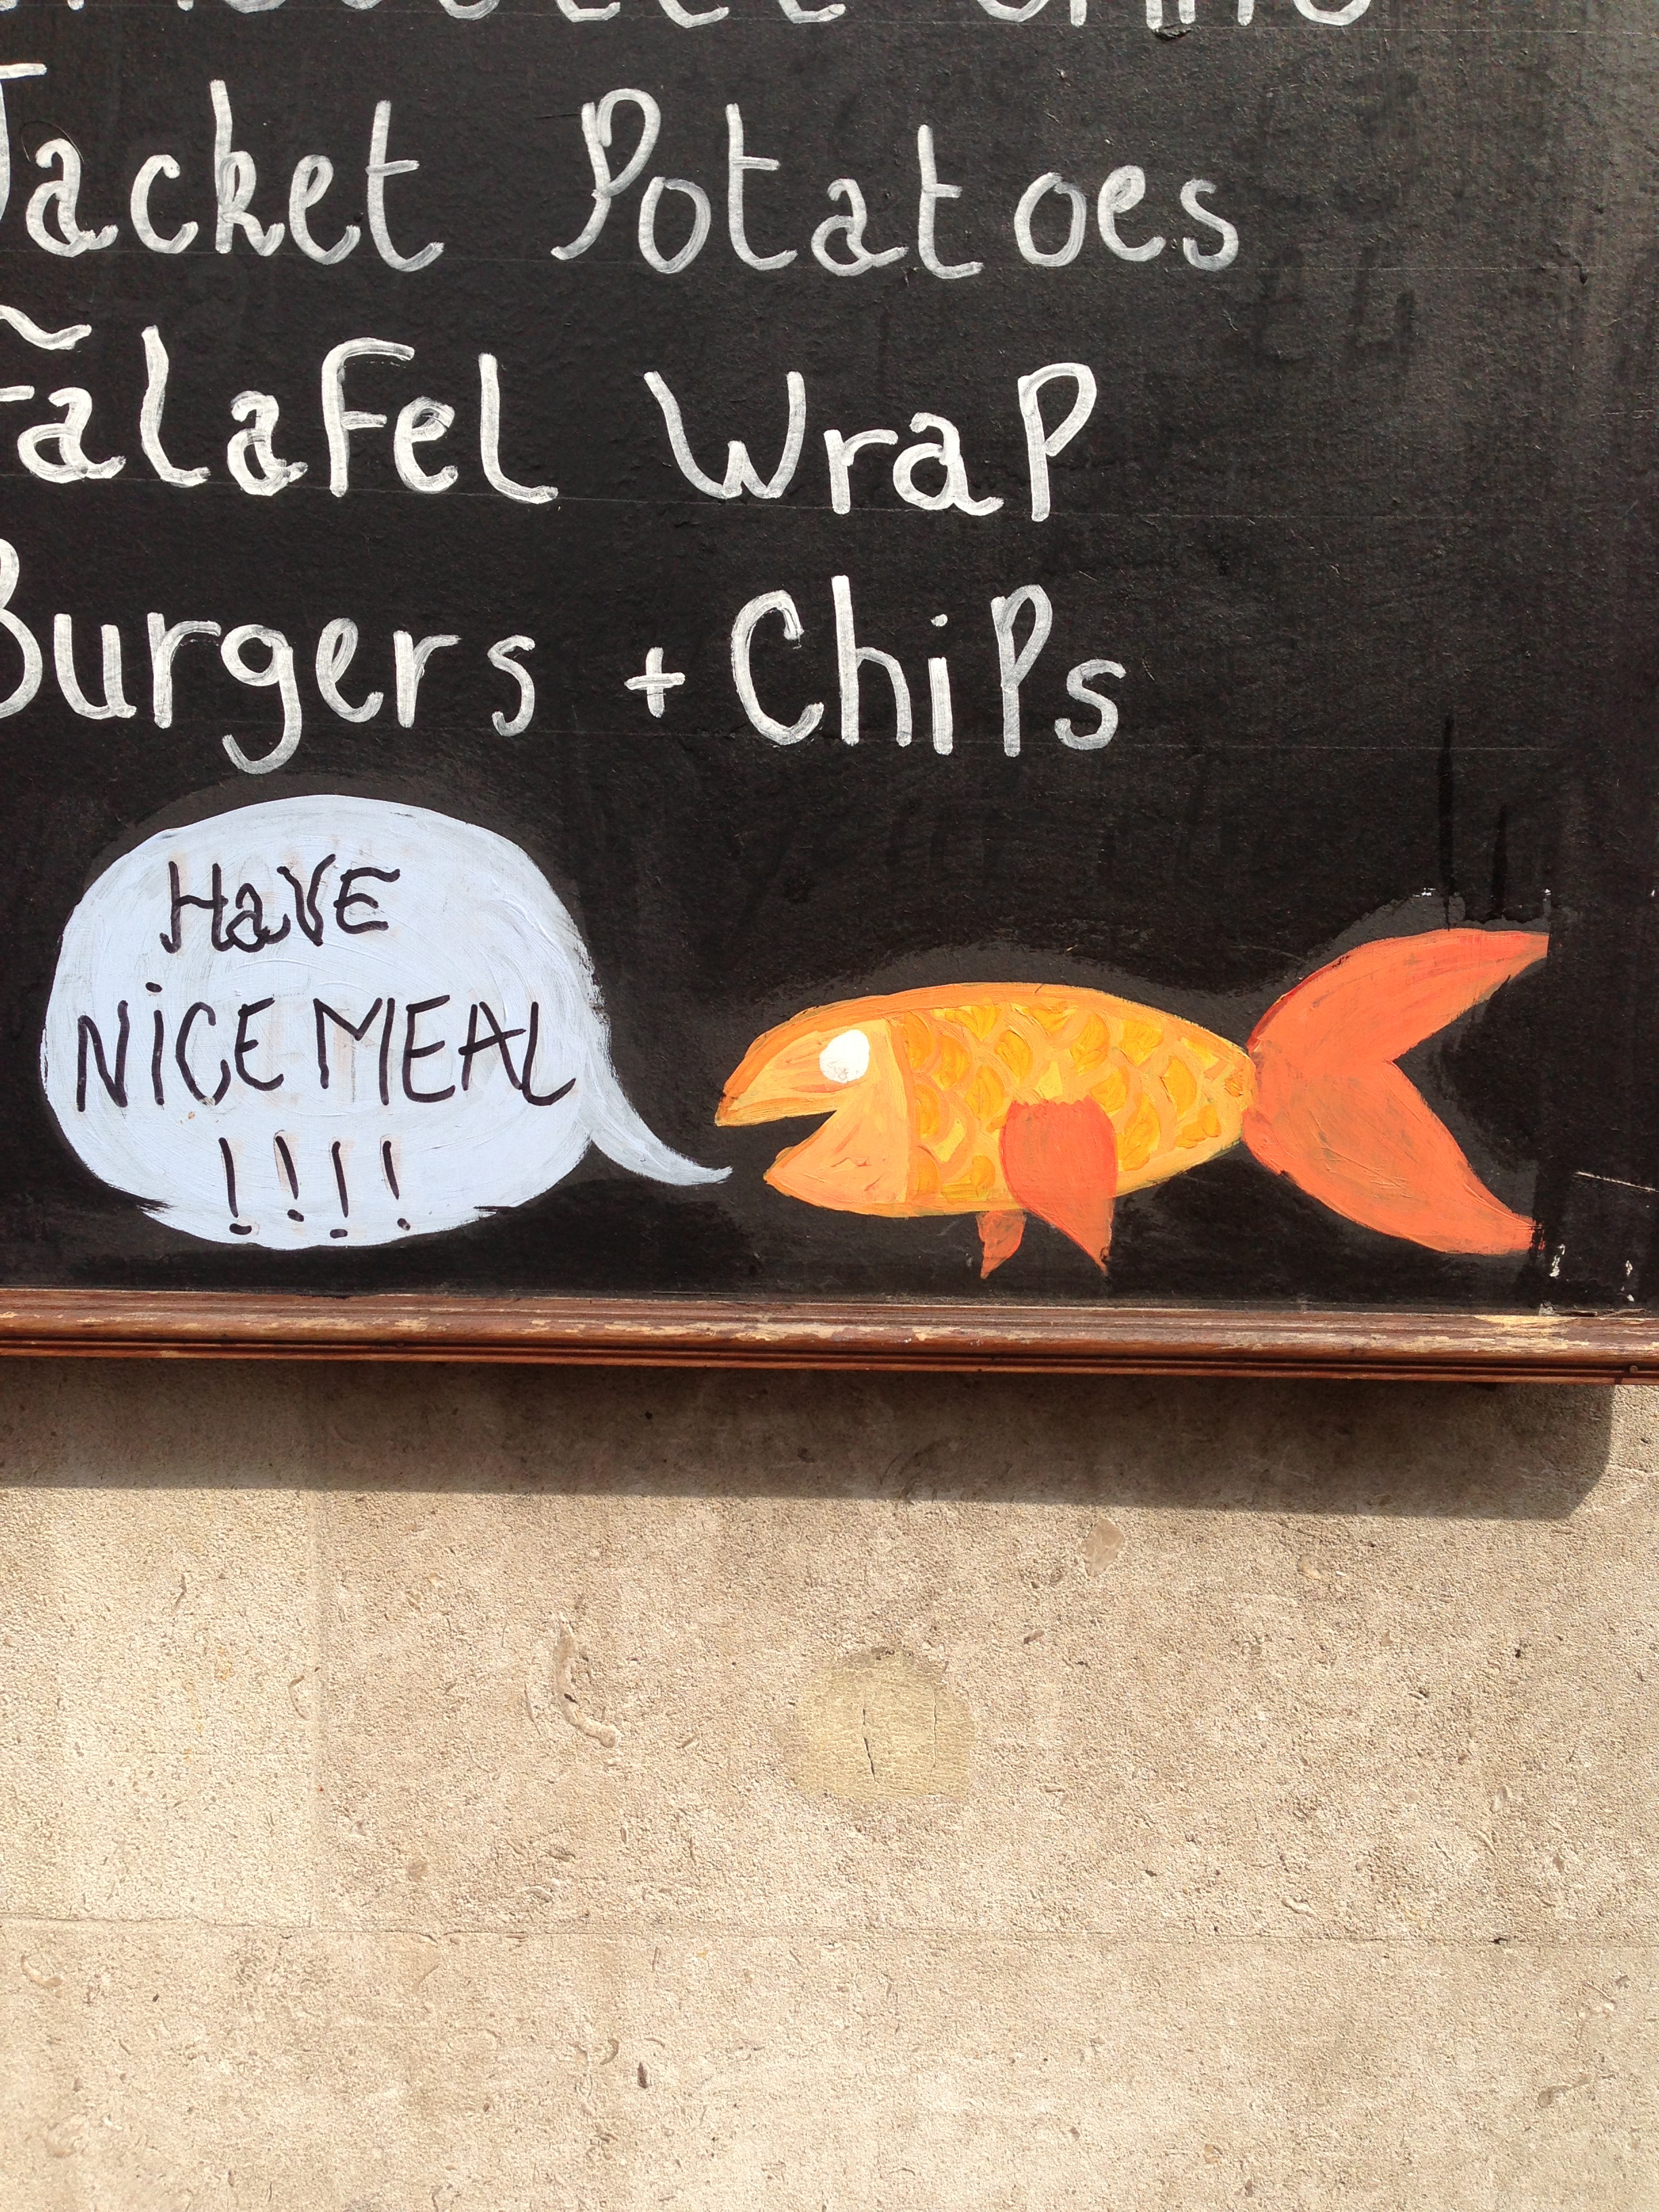 Jacket Potatoes
Falafel Wrap
Burgers + Chips
HaVE
NiCE MEAL
!!!!